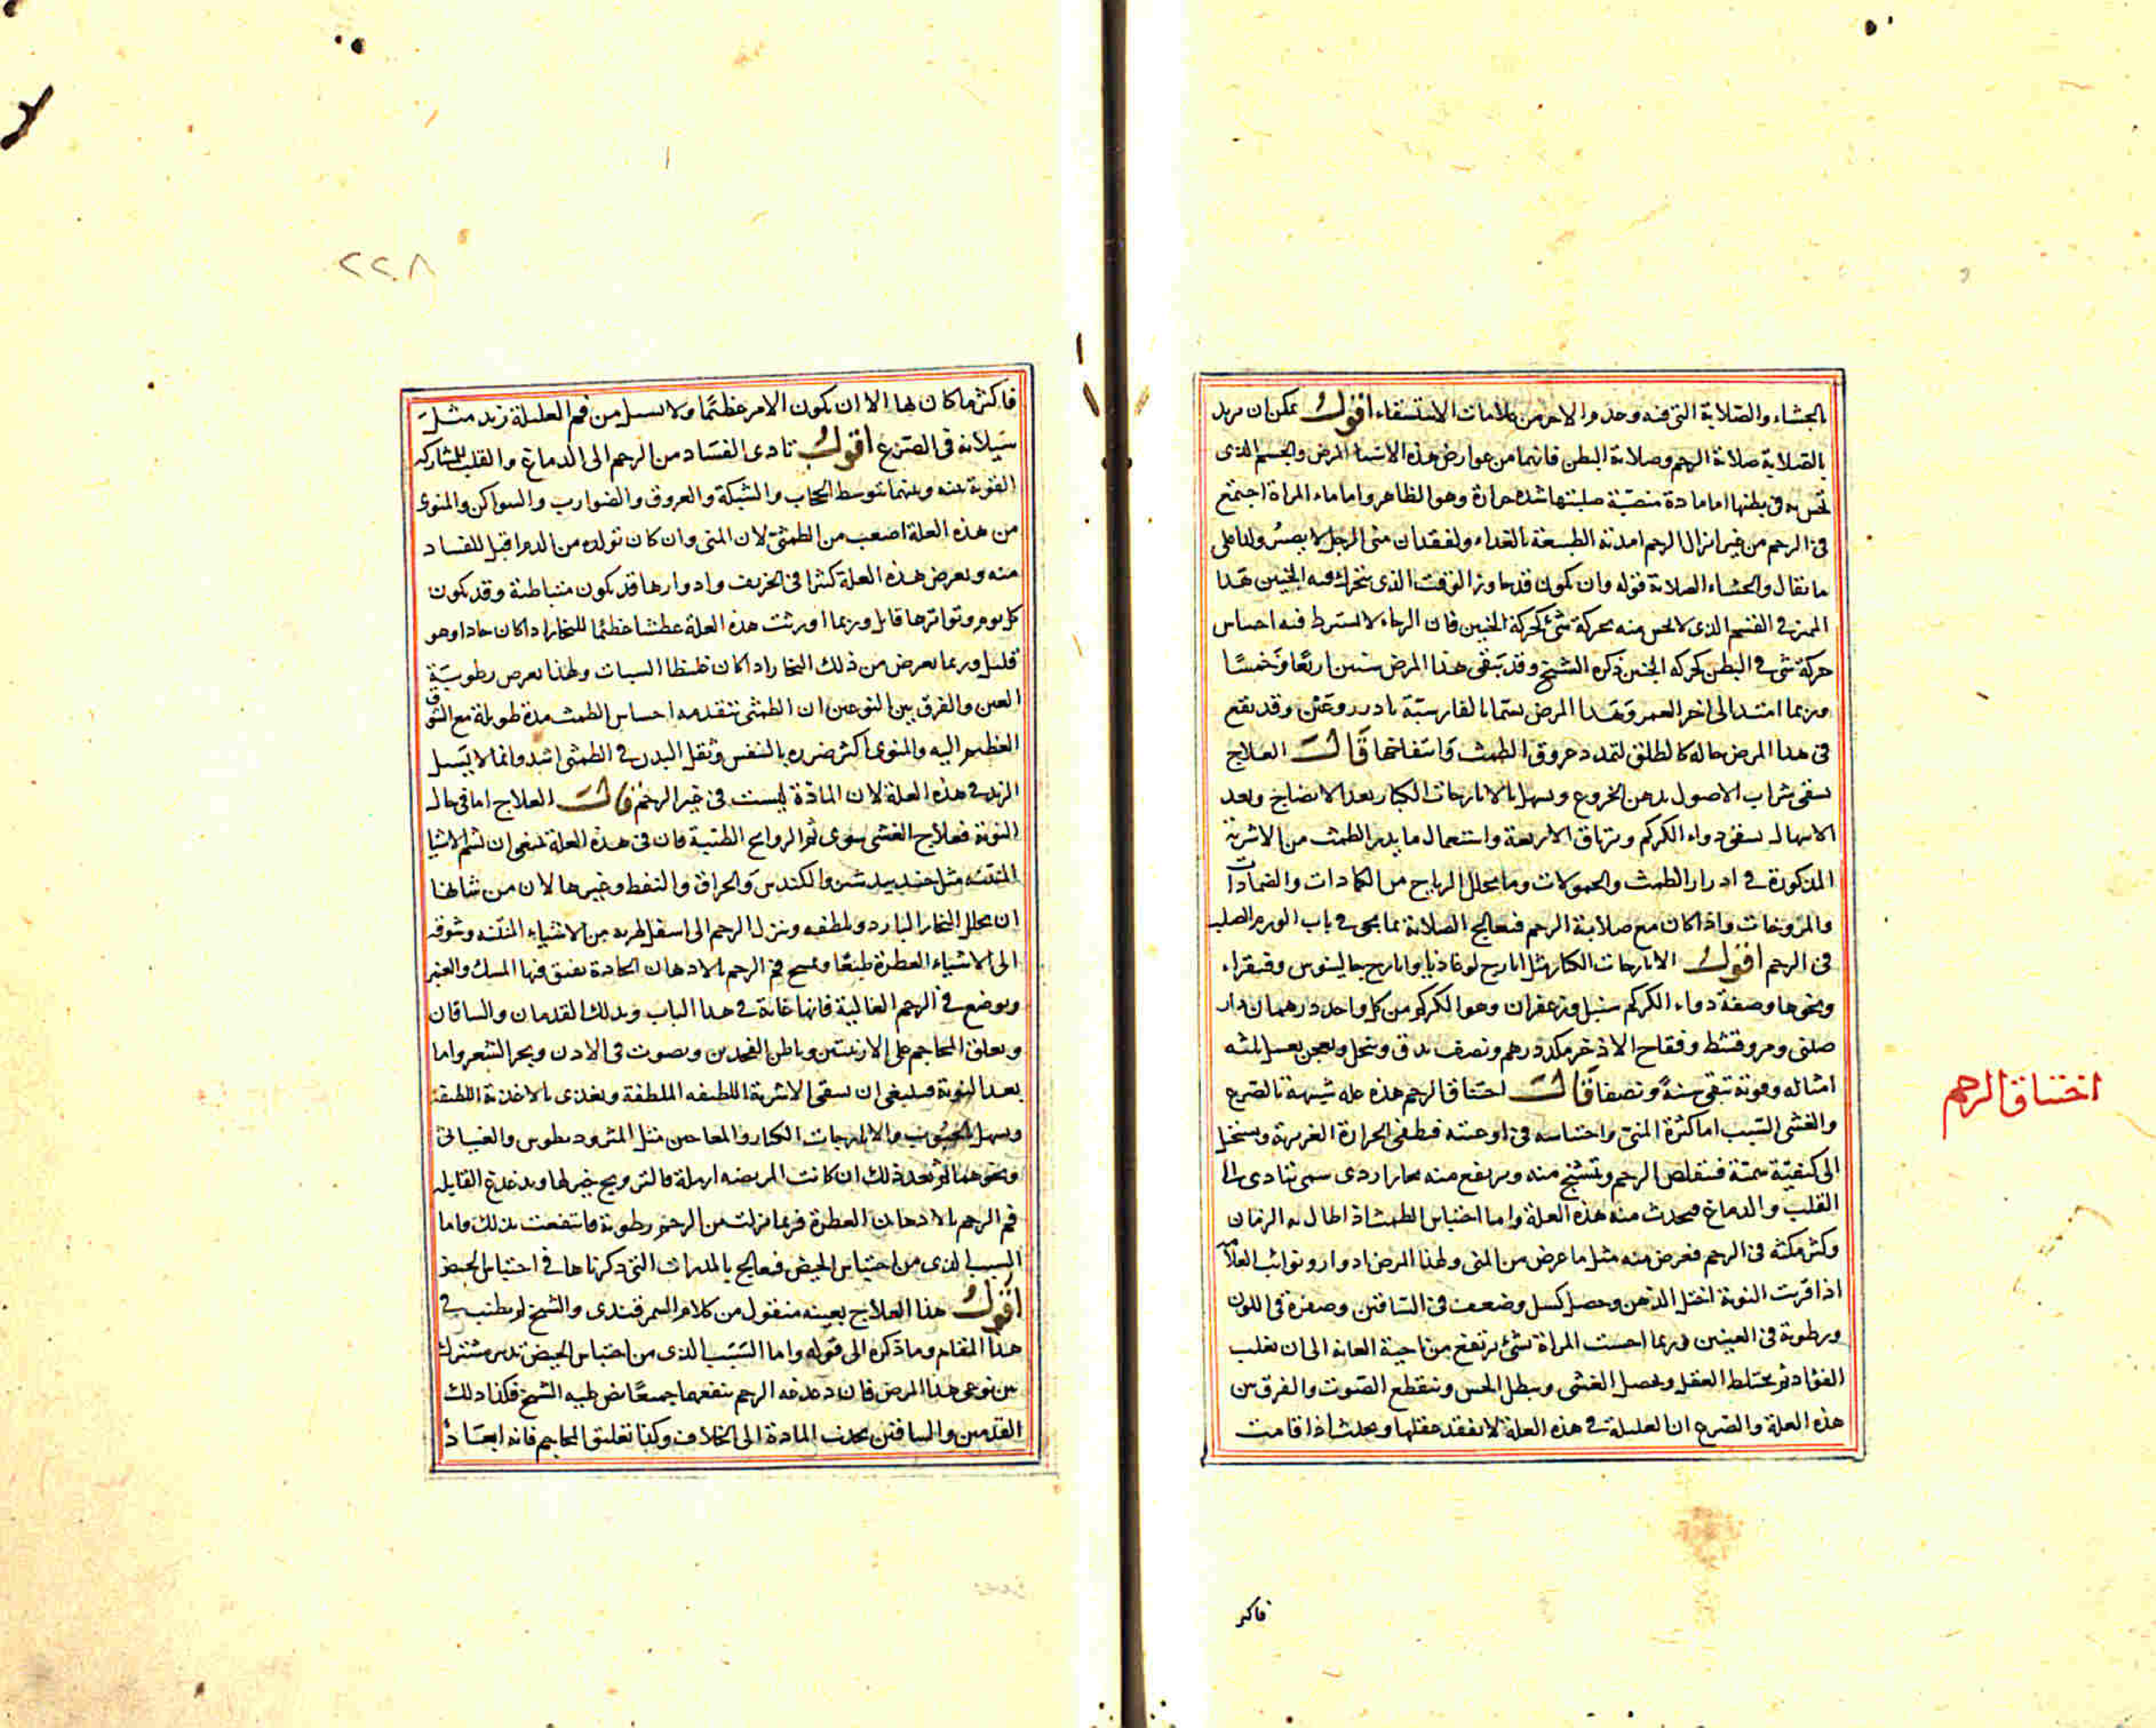 بالجشاء والصلابة التى فيه وحد والاخر من علامات الاستسقاء اقول يمكن ان يريد
بالصلابة صلابة الرحم وصلابة البطن فانهما من عوارض هذه الاشيا المرض والجسم الذى
تحس به فى بطنها اما مادة منصبة صلبتها شدة حرارة وهو الظاهر واما ماء المراة اجتمع
فى الرحم من غير انزال الرحم امدته الطبيعة بالغداء ولفقدان منى الرجل لا يصير ولدا على
ما يقال والجشاء الصلابة قوله وان يكون قد جاوز الوقت الذى يتحرك فيه الجنين هذا
المميز فى القسم الذى لا يحس منه بحركة شئ كحركة الجنين فان الرجاء لا يشترط فيه احساس
حركة شى فى البطن كحركة الجنين ذكره الشيخ وقد يبقى هذا المرض سنين اربعا وخمسا
وربما امتد الى اخر العمر وهذا المرض يسمى بالفارسية باد دروغين وقد يقع
فى هذا المرض حالة كالطلق لتمدد عروق الطمث وانتفاخها قال العلاج
يسقى شراب الاصول بدهن الخروع ويسهل بالايارجات الكبار بعد الانضاج وبعد
الاسهال يسقى دواء الكركم وترياق الاربعة واستعمال ما يدر الطمث من الاشربة
المذكورة فى ادرار الطمث والحمولات وما يحلل الرياح من الكمادات والضمادات
والمروخات واذا كان مع صلابة الرحم فيعالج الصلابة بما يجى فى باب الورم الصلب
فى الرحم اقول الايارجات الكبار مثل ايارج لوغاذيا وايارج جالينوس وفيقراء
ونحوها وصفة دواء الكركم سنبل وزعفران وهو الكركم من كل واحد درهمان دار
صينى ومر وقسط وفقاح الاذخر مكد درهم ونصف يدق وينخل ويعجن بعسل ثلثه
امثاله وقوته تبقى سنة ونصفا قال اختناق الرحم هذه علة شبيهة بالصرع
والغشى السبب اما كثرة المنى واحتباسه فى اوعيته فيطفى الحرارة الغريزية ويستحيل
الى كيفية سمية فيتقلص الرحم وتشنج منه ويرتفع منه بخار ردى سمى يتادى الى
القلب والدماغ فيحدث منه هذه العلة واما احتباس الطمث اذا طال به الزمان
وكثر مكثه فى الرحم فعرض منه مثل ما عرض من المنى ولهذا المرض ادوار ونوائب العلامة
اذا قربت النوبة اختل الذهن وحصل كسل وضعف فى الساقين وصفرة فى اللون
ورطوبة فى العينين وربما احست المراة بشئ يرتفع من ناحية العانة الى ان يغلب
الفؤاد ثم يختلط العقل ويحصل الغشى ويبطل الحس وينقطع الصوت والفرق بين
هذه العلة والصرع ان العليلة فى هذه العلة لا تفقد عقلها ويحدث اذا قامت
اختناق الرحم
فاكثر
٢٢٨
فاكثر ما كان بها الا ان يكون الامر عظيما ولا يسيل من فم العليلة زبد مثل
سيلانه فى الصرع اقول تادى الفساد من الرحم الى الدماغ والقلب للمشاركة
القوية بينه وبينهما بتوسط الحجاب والشبكة والعروق والضوارب والسواكن والمنوى
من هذه العلة اصعب من الطمثى لان المنى وان كان تولده من الدم اقبل للفساد
منه ويعرض هذه العلة كثيرا فى الخريف وادوارها قد يكون متباطئة وقد يكون
كل يوم وتواترها قاتل وربما اورثت هذه العلة عطشا عظيما للبخار اذا كان حادا وهو
قليل وربما يعرض من ذلك البخار اذا كان غليظا السبات ولهذا يعرض رطوبة فى
العين والفرق بين النوعين ان الطمثى يتقدمه احتباس الطمث مدة طويلة مع الشوق
العظيم اليه والمنوى اكثر ضرره بالنفس وثقل البدن فى الطمثى اشد وانما لا يسيل
الزبد فى هذه العلة لان المادة ليست فى غير الرحم قال العلاج اما فى حال
النوبة فعلاج الغشى سوى شم الروايح الطيبة فان فى هذه العلة ينبغى ان تشم الاشيا
المنتنة مثل جندبيدستر والكندس والحراق والنفط وغيرها لان من شانها
ان يحلل البخار البارد ويلطفه وينزل الرحم الى اسفل لهربه من الاشياء المنتنة وشوقه
الى الاشياء العطرة طبعا ويمسح فم الرحم بالادهان الحادة يفتق فيها المسك والعنبر
ويوضع فى الرحم الغالية فانها غاية فى هذا الباب ويدلك القدمان والساقان
ويعلق المحاجم على الاربيتين وباطن الفخذين ويصوت فى الاذن ويجر الشعر واما
بعد النوبة فينبغى ان يسقى الاشربة اللطيفة الملطفة ويغذى بالاغذية اللطيفة
ويسهل بالحبوب والايارجات الكبار والمعاجين مثل المثروديطوس والغياثى
ونحوهما ثم بعد ذلك ان كانت المريضة ارملة فالتزويج خير لها ويدغدغ القابلة
فم الرحم بالادهان العطرة فربما نزلت من الرحم رطوبة فانتفعت بذلك واما
السبب الذى من احتباس الحيض فيعالج بالمدرات التى ذكرناها فى احتباس الحيض
اقول هذا العلاج بعينه منقول من كلام السمرقندى والشيخ لم يطنب فى
هذا المقام وما ذكره الى قوله واما السبب الذى من احتباس الحيض تدبير مشترك
بين نوعى هذا المرض فان دغدغة الرحم ينفعهما جميعا نص عليه الشيخ فكذا دلك
القدمين والساقين يجذب المادة الى الخلاف وكذا تعليق المحاجم فانه ايضا